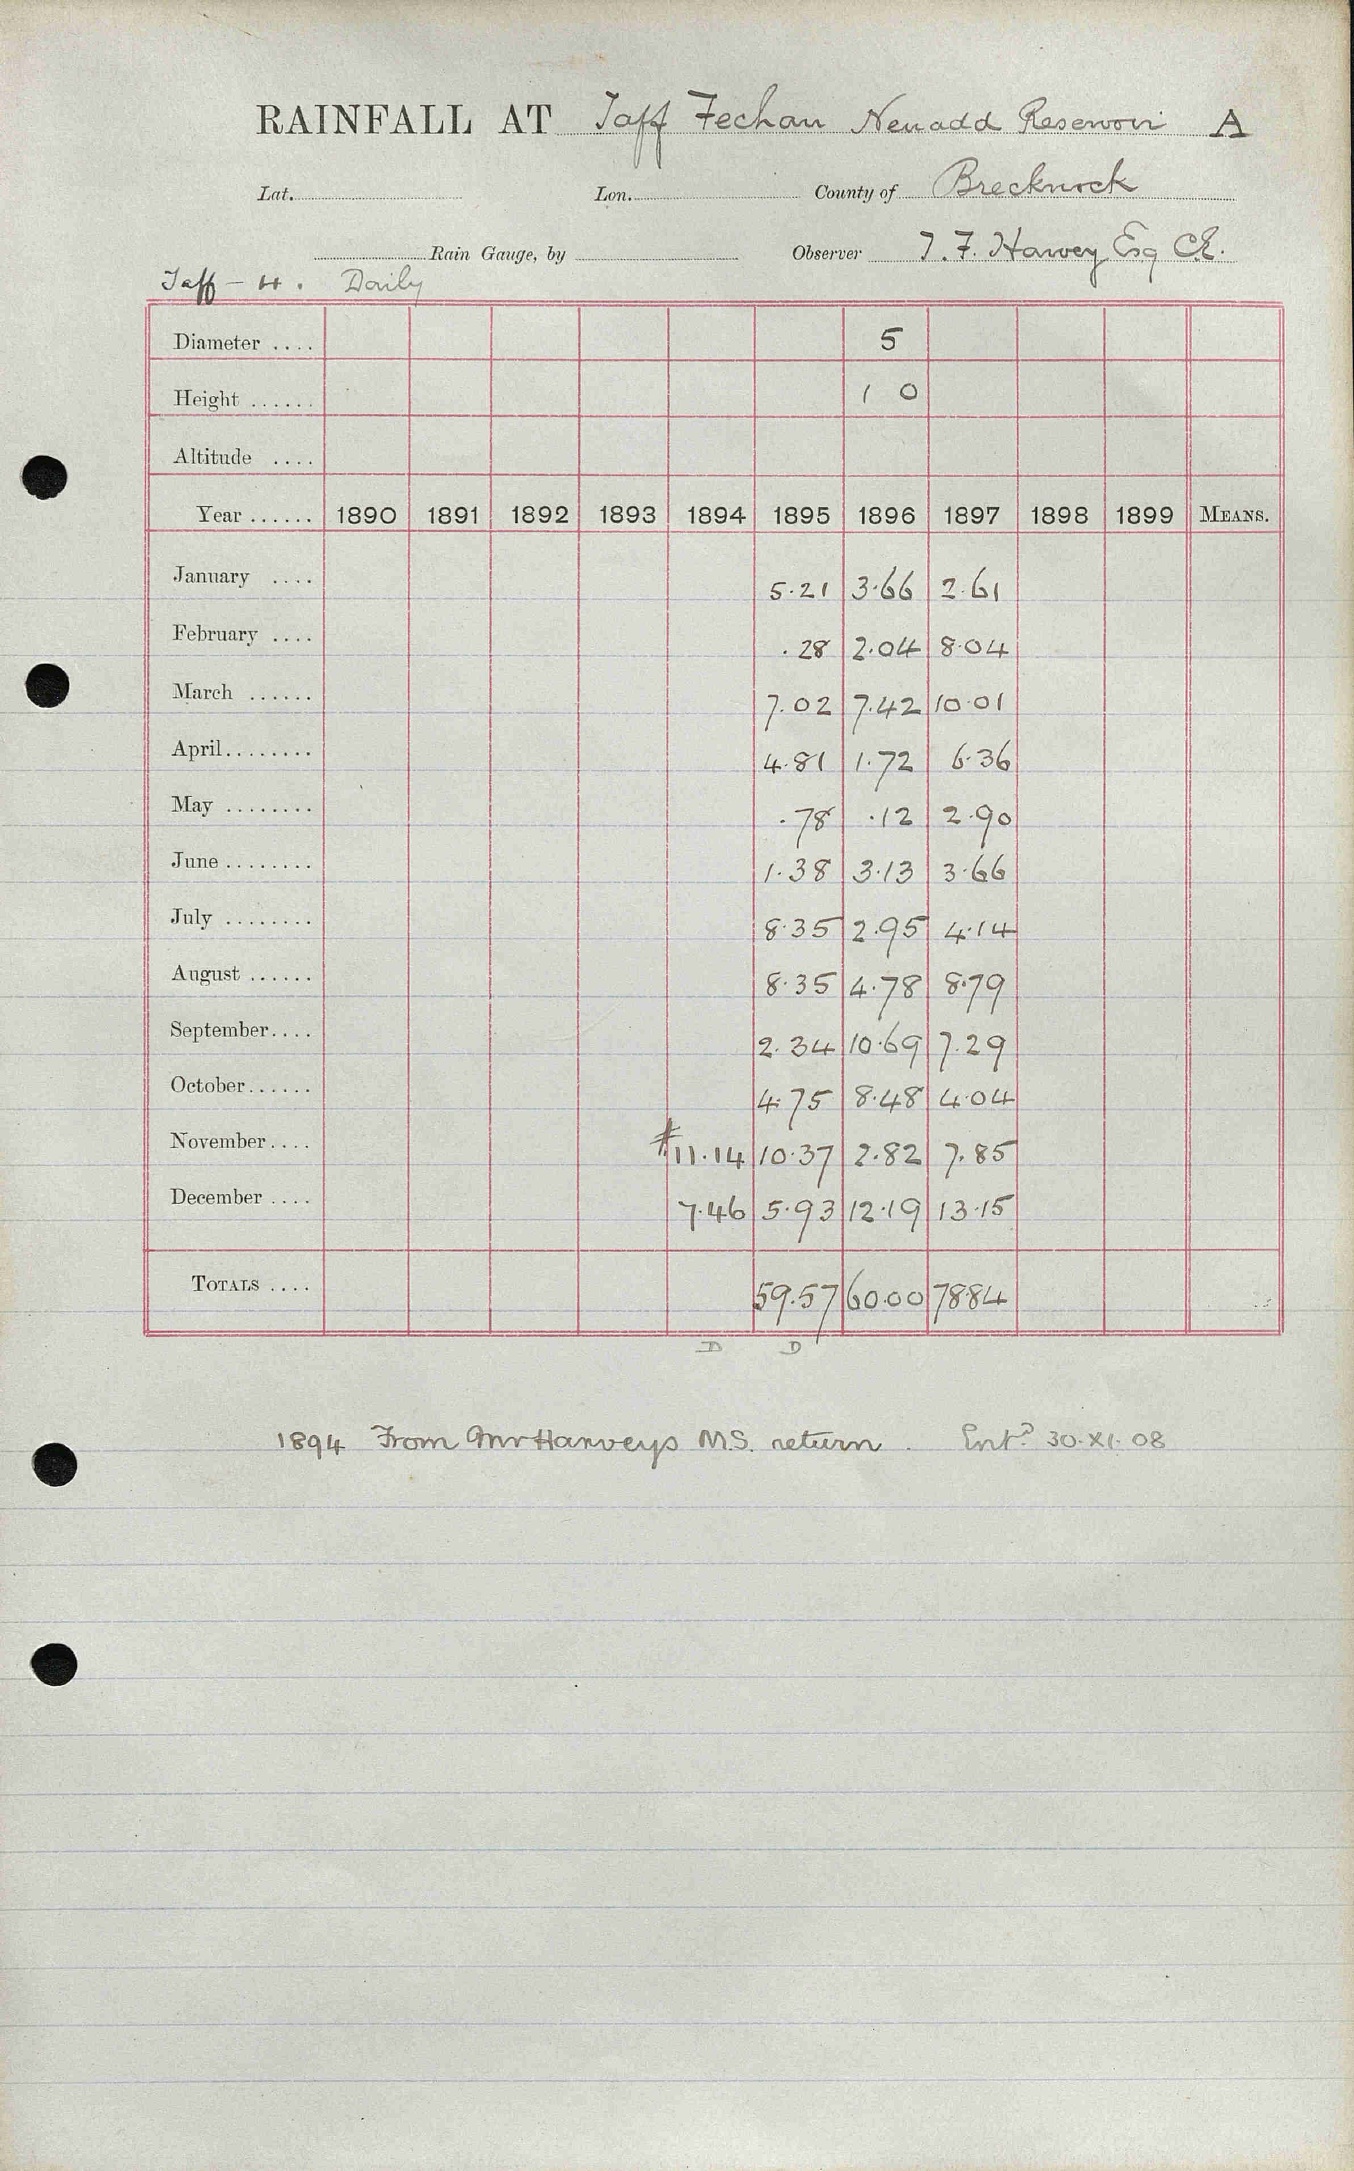 RAINFALL AT Taff Fechan Neuadd Reservoir A
Lat. Lon. County of Brecknock
Rain Gauge, by Observer T. F. Harvey Esq C.E.
Taff - H. Daily
Diameter .... 5
Height ...... 1 0
Altitude ....
Year ...... 1890 1891 1892 1893 1894 1895 1896 1897 1898 1899 MEANS.
January .... 5.21 3.66 2.61
February .... .28 2.04 8.04
March ...... 7.02 7.42 10.01
April ........ 4.81 1.72 6.36
May ........ .78 .12 2.90
June ........ 1.38 3.13 3.66
July ........ 8.35 2.95 4.14
August ...... 8.35 4.78 8.79
September .... 2.34 10.69 7.29
October ...... 4.75 8.48 4.04
November .... #11.14 10.37 2.82 7.85
December .... 7.46 5.93 12.19 13.15
TOTALS .... 59.57 60.00 78.84
D D
1894 From Mr Harveys M.S. return. Entd 30.XI.08